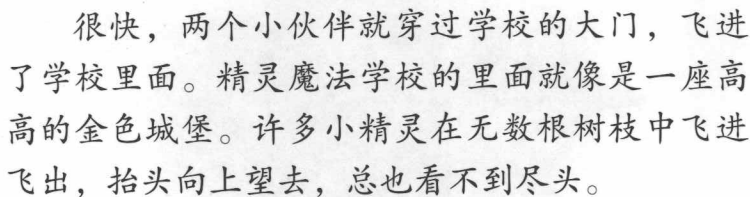 很快，两个小伙伴就穿过学校的大门，飞进
了学校里面。精灵魔法学校的里面就像是一座高
高的金色城堡。许多小精灵在无数根树枝中飞进
飞出，抬头向上望去，总也看不到尽头。